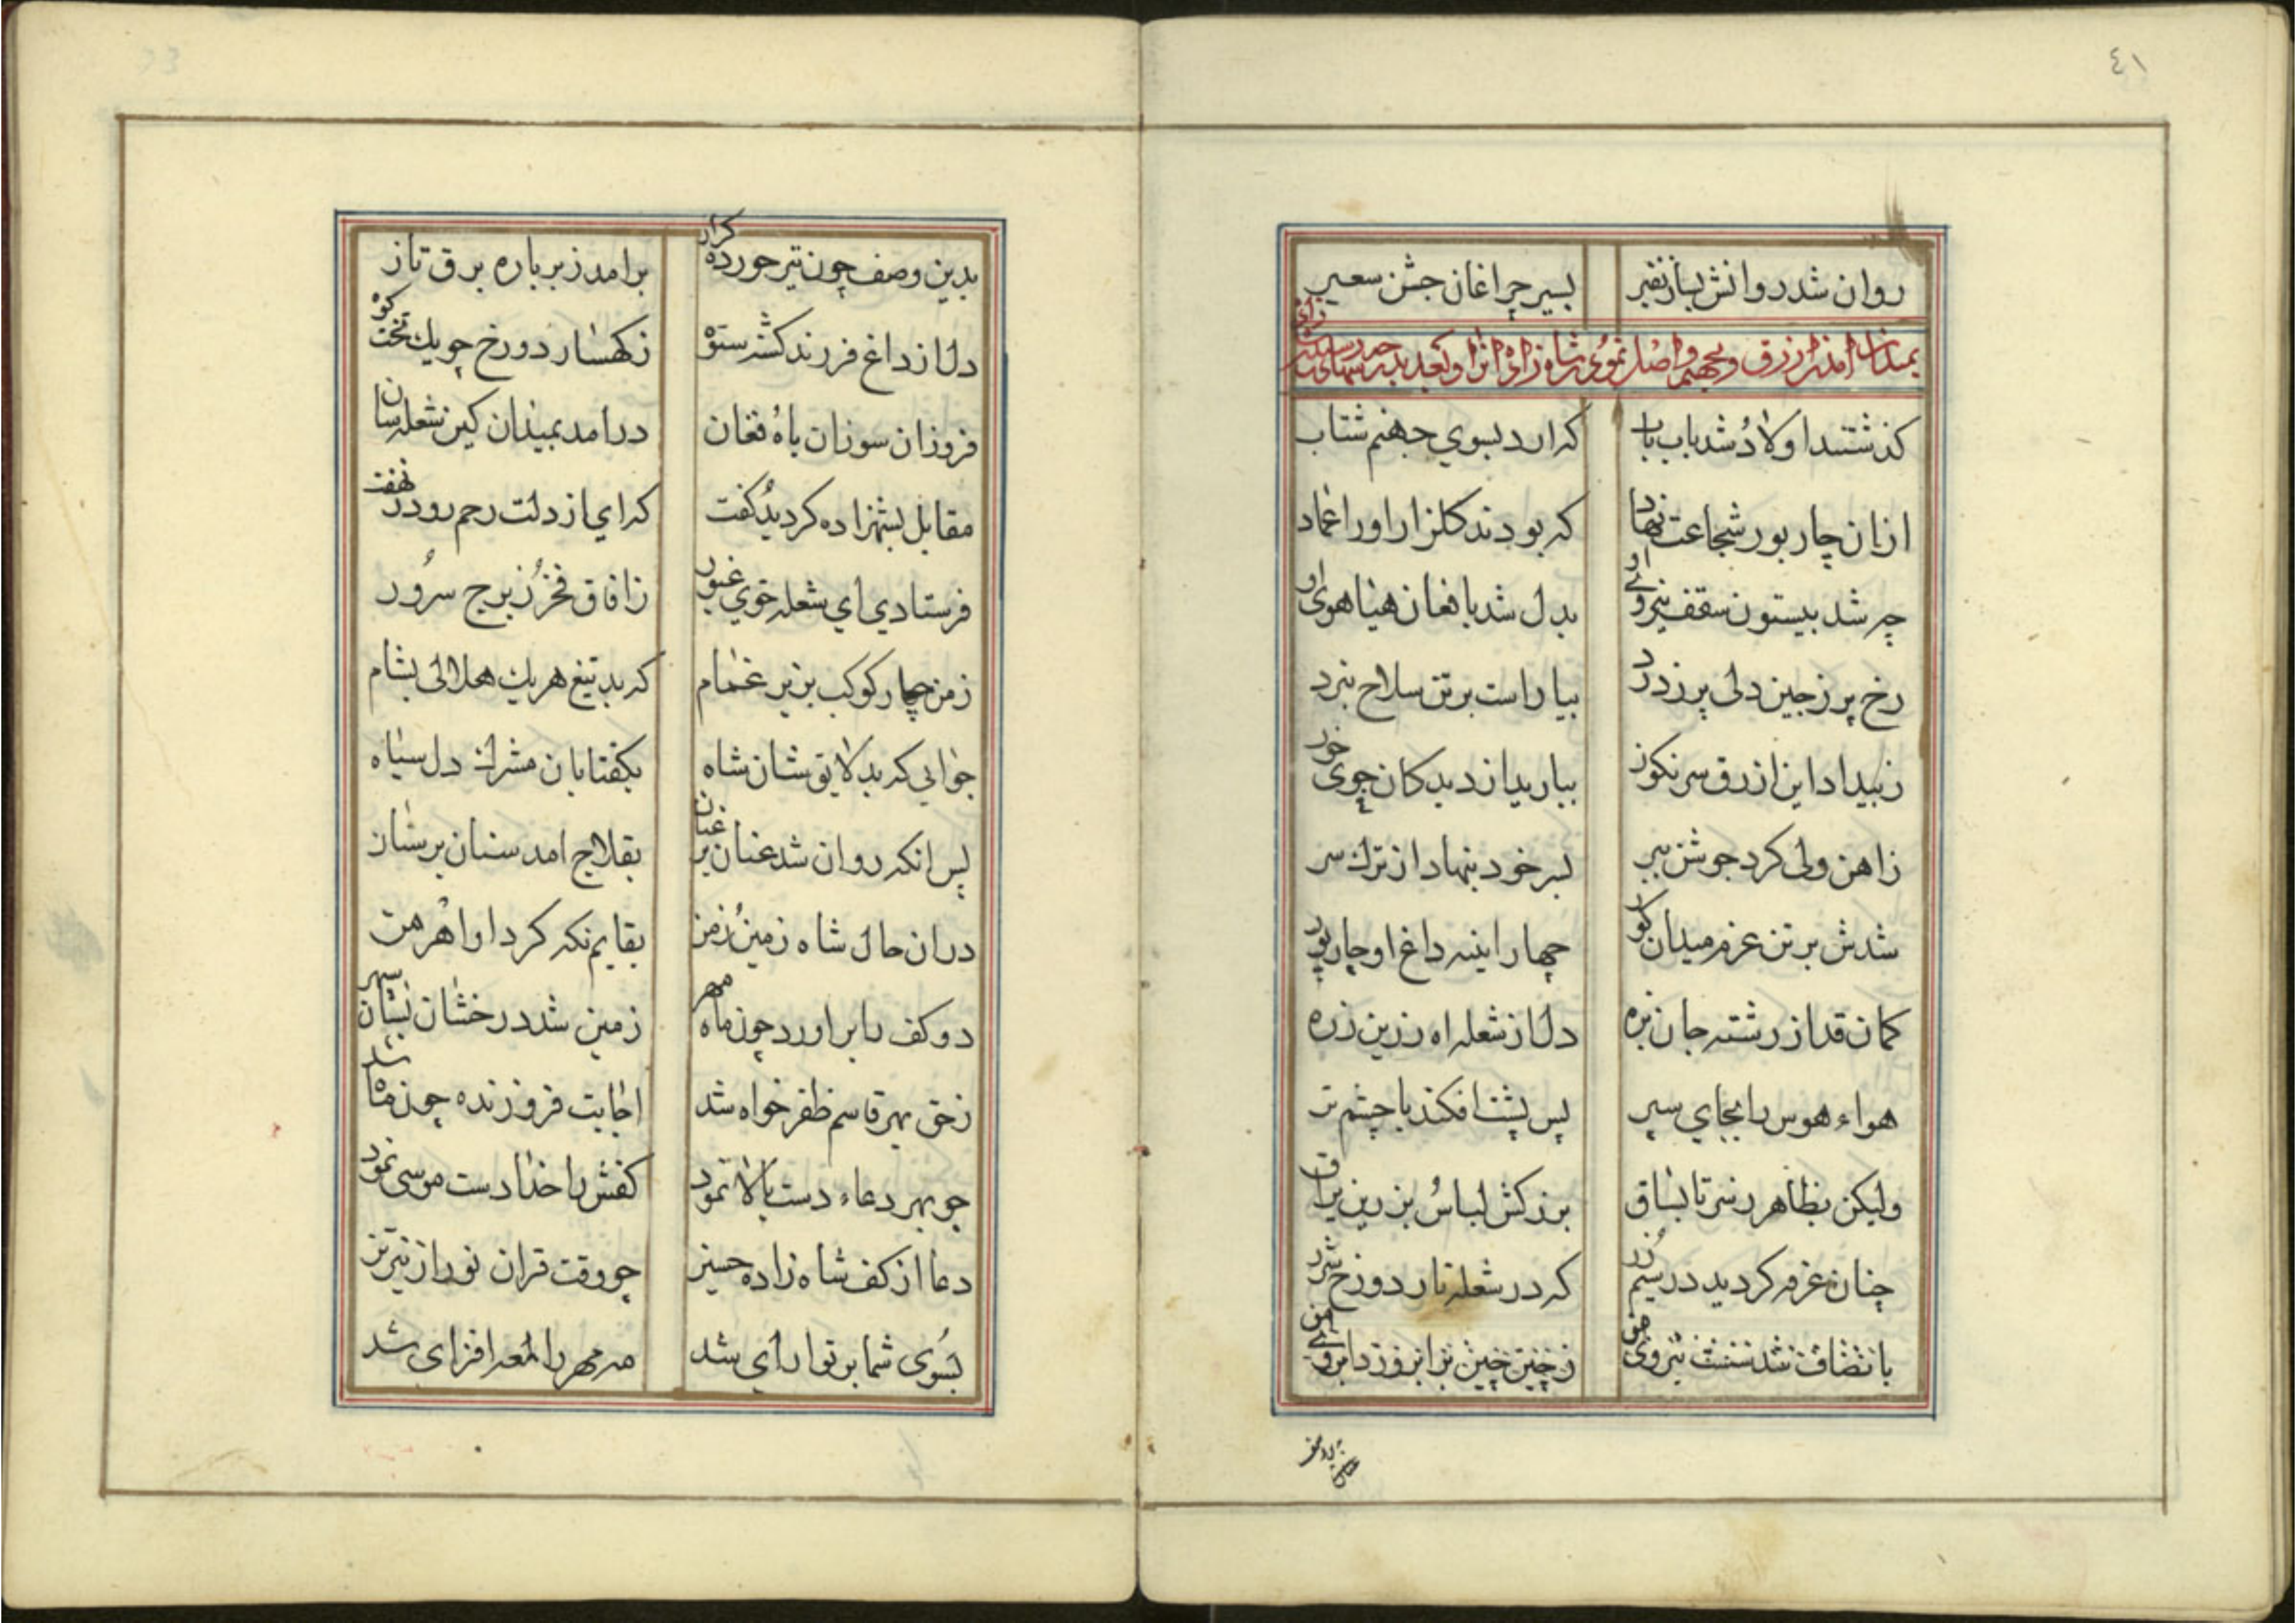 ٤١
روان شد روانش بساز نفیر بسیر چراغان جشن سعیر
بمیدان امدن ازرق و بجهنم واصل نمودن شاه زاده
کذشتند اولاد شد باب باب که ارد بسوي جهنم شتاب
ازان چار پور شجاعت نهاد که بودند کلزار او را عماد
چه شد بیستون سقف نیروی او بدل شد بافغان هیاهوی او
رخ پر ز چین دلی پر ز درد بیاراست بر تن سلاح نبرد
ز بیداد این ازرق سرنکون ببارید از دیدکان جوی خون
ز اهن ولی کرد جوشن ببر بسر خود بنهاد از ترك سر
شدش بر تن عزم میدان کور چهار اینه داغ او چار پور
کمان قد از رشته جان بزه دل از شعله اه زرین زره
هواء هوس را بجاي سپر پس پشت افکند با چشم تر
ولیکن بظاهر ز سر تا بساق بزرکش لباسُ بزرین یراق
چنان غرق کردید در سیم زر که در شعله نار دوزخ شرر
بدین وصف چون تیر خورده کراز برامد ز بر باره برق تاز
دل از داغ فرزند کشته ستوه ز کهسار دوزخ چو یك تخت کوه
فروزان سوزان باه فغان درامد بمیدان کین شعله سان
مقابل بشهزاده کردید کفت که اي از دلت رحم رو در نهفت
فرستادي اي شعله خوي غیور ز افاق فخرُ ز برج سرور
ز من چهار کوکب بزیر غمام که بد تیغ هریك هلالی بشام
جوابي که بد لایق شان شاه بکفتا بان مشرك دل سیاه
پس انکه روان شد عنان بر عنان بقلاج امد سنان بر سنان
دران حال شاه زمین زمن بقایم نکه کرد او اهرمن
دو کف را براورد چون ماه مهر زمین شد درخشان بسان سپهر
ز حق بهر قاسم ظفر خواه شد اجابت فروزنده چون ماه شد
چو بهر دعاء دست بالا نمود کفش را خدا دست موسی نمود
دعا از کف شاه زاده حسین چو وقت قران نور از نیرین
بسُوی شما پرتو اراي شد مه مهر را لمعه افزای شد